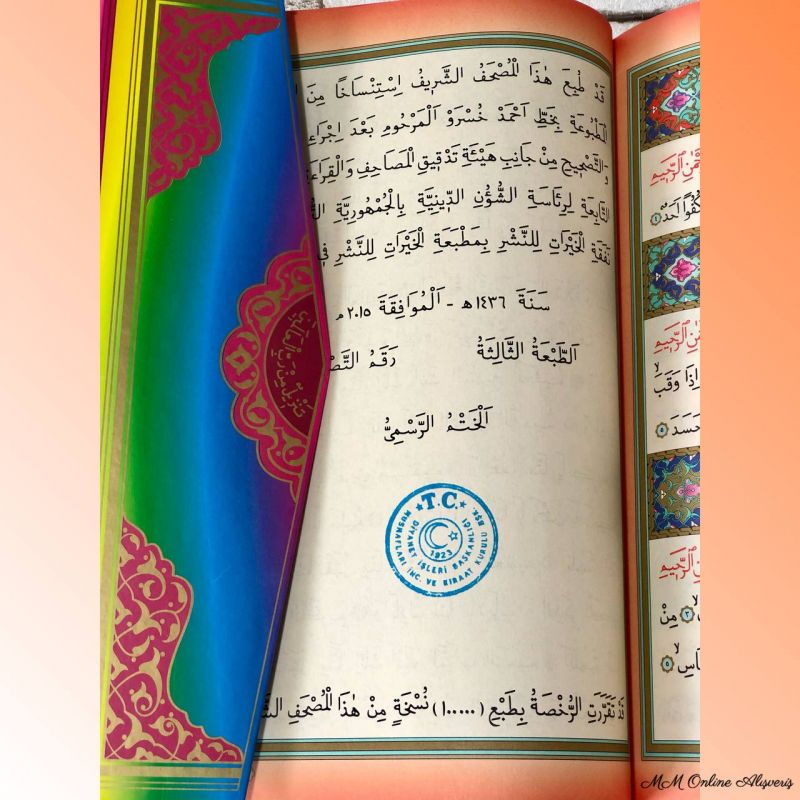 قَدْ طُبِعَ هٰذَا الْمُصْحَفُ الشَّرِيفُ اِسْتِنْسَاخًا مِنَ
الْمَطْبُوعَةِ بِخَطِّ اَحْمَدْ خُسْرَوْ اَلْمَرْحُومِ بَعْدَ اِجْرَاءِ
وَالتَّصْحِيحِ مِنْ جَانِبِ هَيْئَةِ تَدْقِيقِ الْمَصَاحِفِ وَالْقِرَاءَ
التَّابِعَةِ لِرِئَاسَةِ الشُّؤُنِ الدِّينِيَّةِ بِالْجُمْهُورِيَّةِ
نَفَقَةِ الْخَيْرَاتِ لِلنَّشْرِ بِمَطْبَعَةِ الْخَيْرَاتِ لِلنَّشْرِ فِي
سَنَةَ ١٤٣٦ هـ - اَلْمُوَافَقَةَ ٢٠١٥ م
اَلطَّبْعَةُ الثَّالِثَةُ رَقَمُ
اَلْخَتْمُ الرَّسْمِيُّ
T.C.
DİYANET İŞLERİ BAŞKANLIĞI
MUSHAFLARI İNC. VE KIRAAT KURULU BŞK.
1923
قَدْ تَقَرَّرَتِ الرُّخْصَةُ بِطَبْعِ (١٠٠٠٠٠) نُسْخَةٍ مِنْ هٰذَا الْمُصْحَفِ
تَنْزِيلٌ مِنْ رَبِّ الْعَالَمِينَ
الرَّحِيمِ
كُفُوًا اَحَدٌ
الرَّحِيمِ
اِذَا وَقَبَ
حَسَدَ ٥
الرَّحِيمِ
مِنْ
MM Online Alışveriş